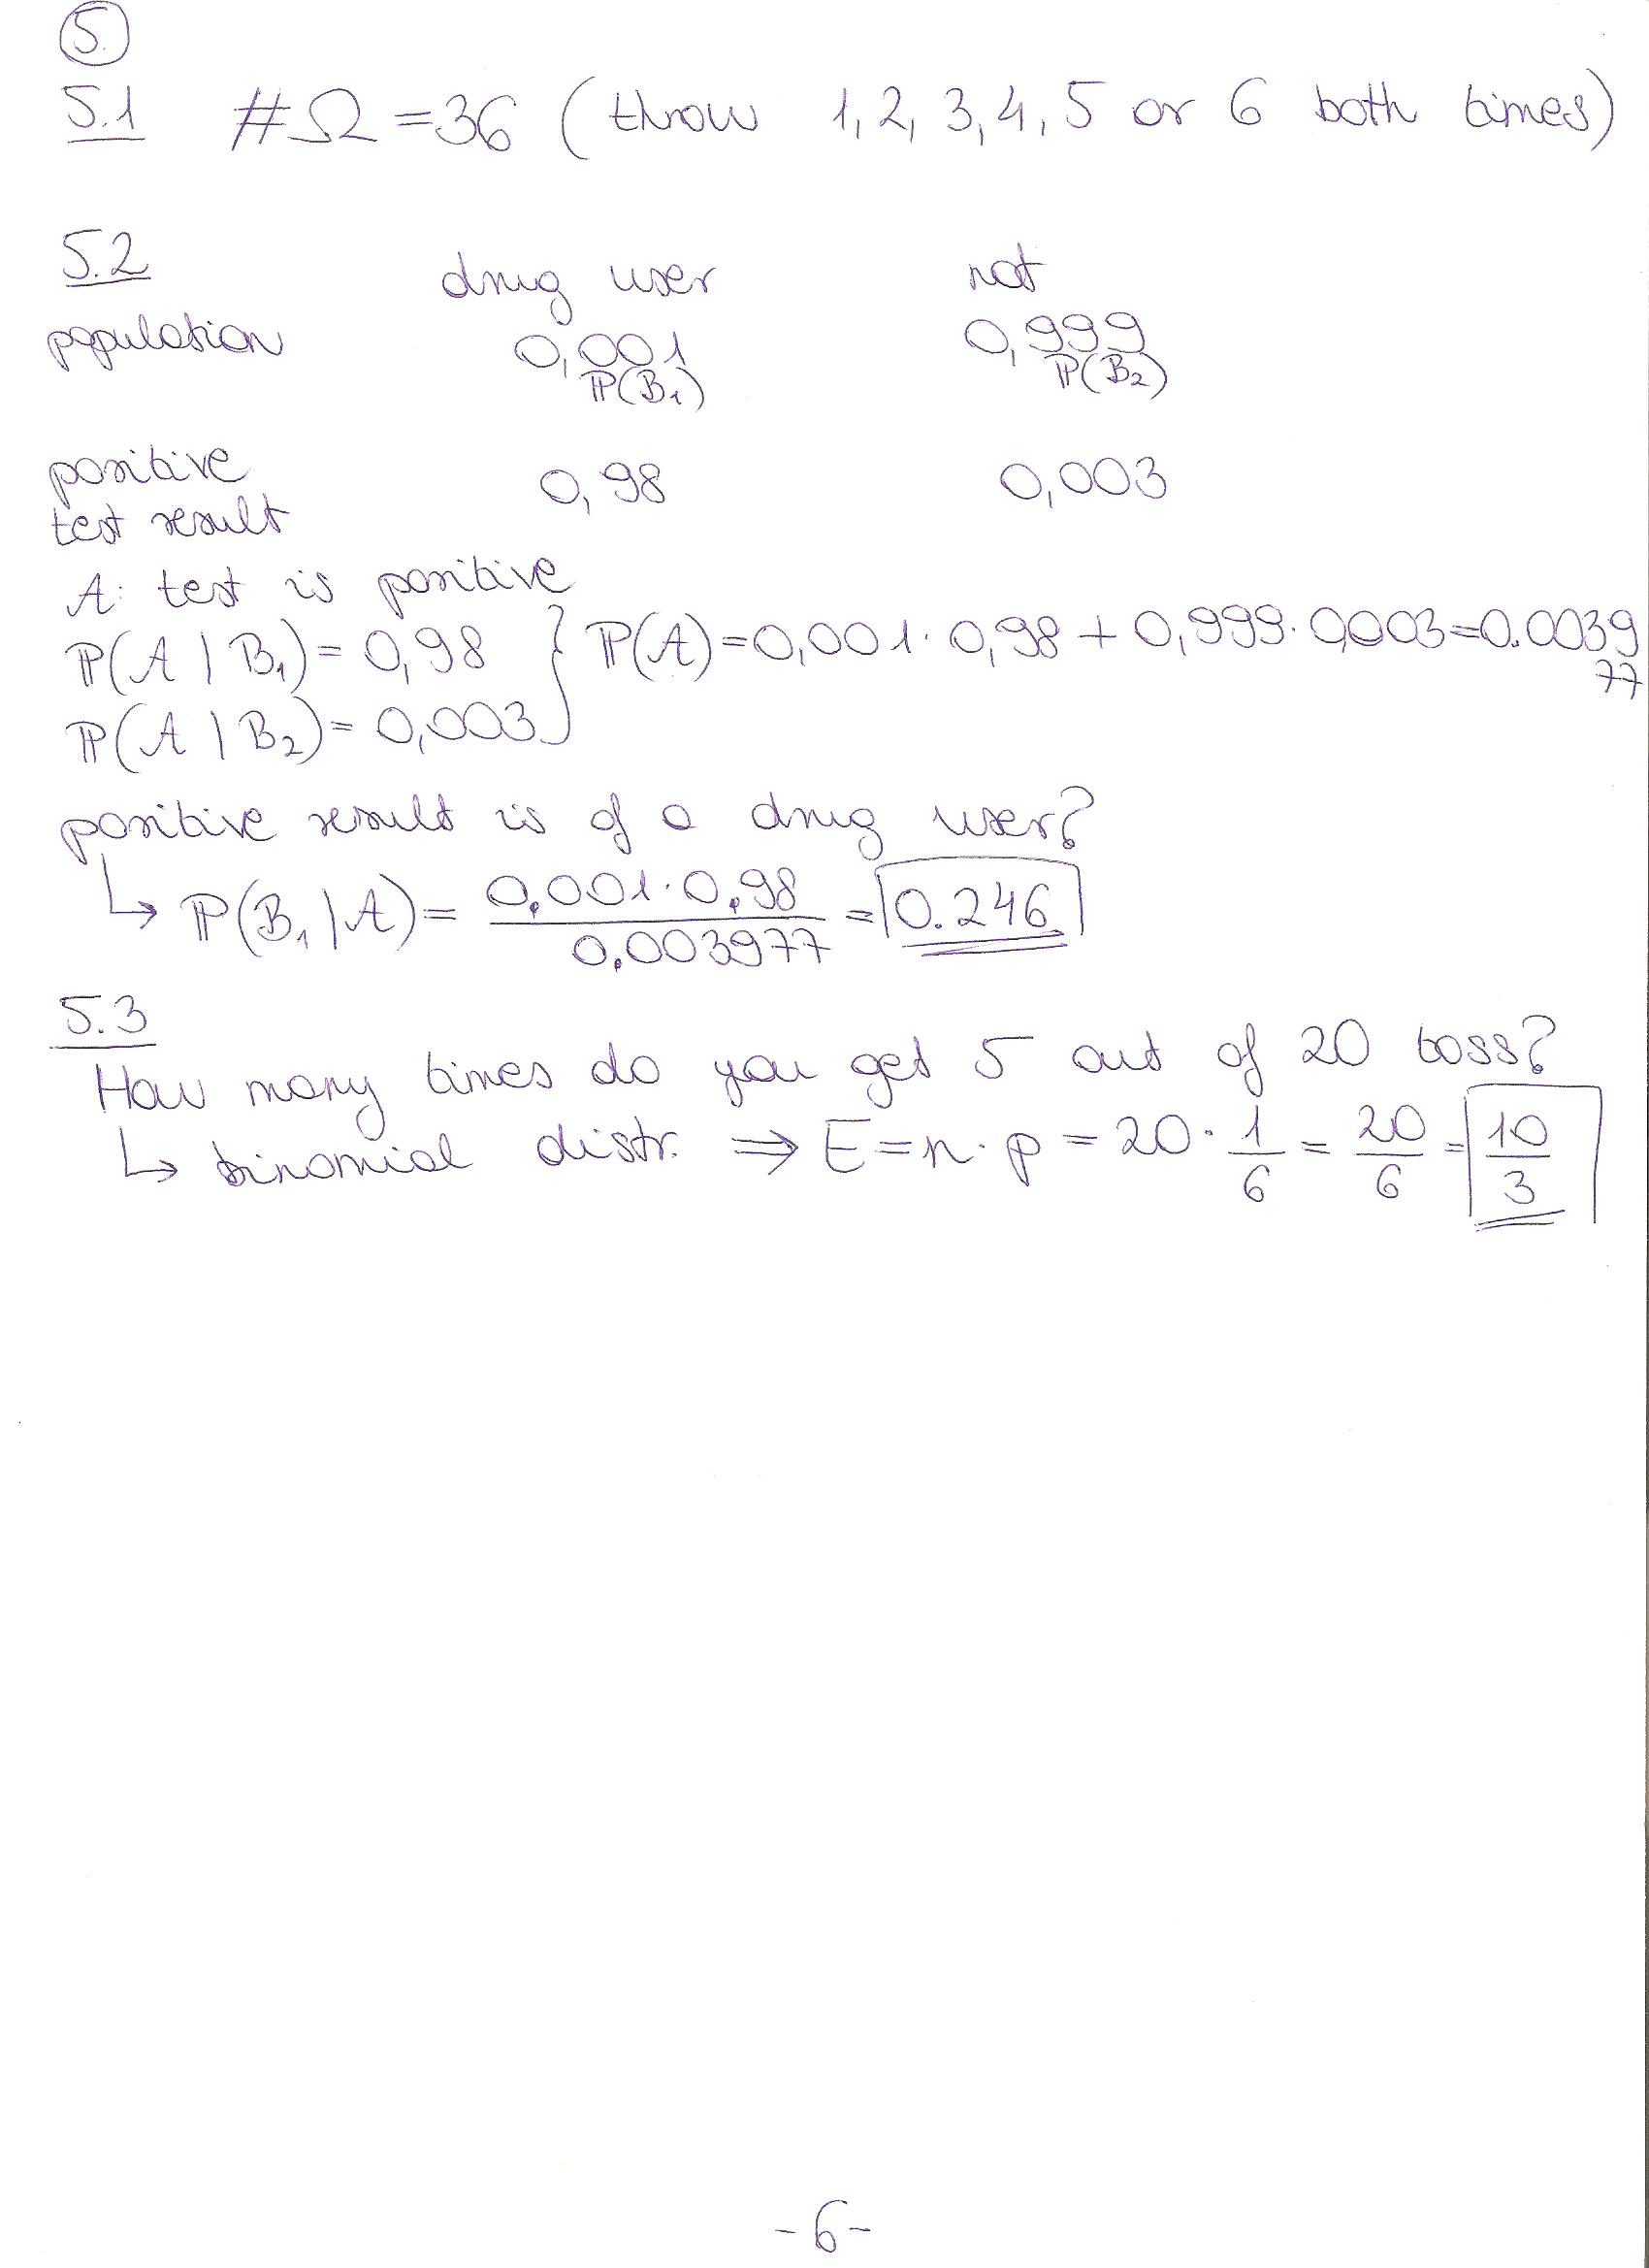 5.
5.1 #Ω = 36 (throw 1, 2, 3, 4, 5 or 6 both times)
5.2 drug user not
population 0,001 0,999
ℙ(B₁) ℙ(B₂)
positive 0,98 0,003
test result
A: test is positive
ℙ(A | B₁) = 0,98 } ℙ(A) = 0,001 · 0,98 + 0,999 · 0,003 = 0.0039
77
ℙ(A | B₂) = 0,003
positive result is of a drug user?
↳ ℙ(B₁ | A) = 0.001 · 0.98 / 0.003977 = 0.246
5.3
How many times do you get 5 out of 20 toss?
↳ binomial distr. ⇒ E = n · p = 20 · 1/6 = 20/6 = 10/3
-6-